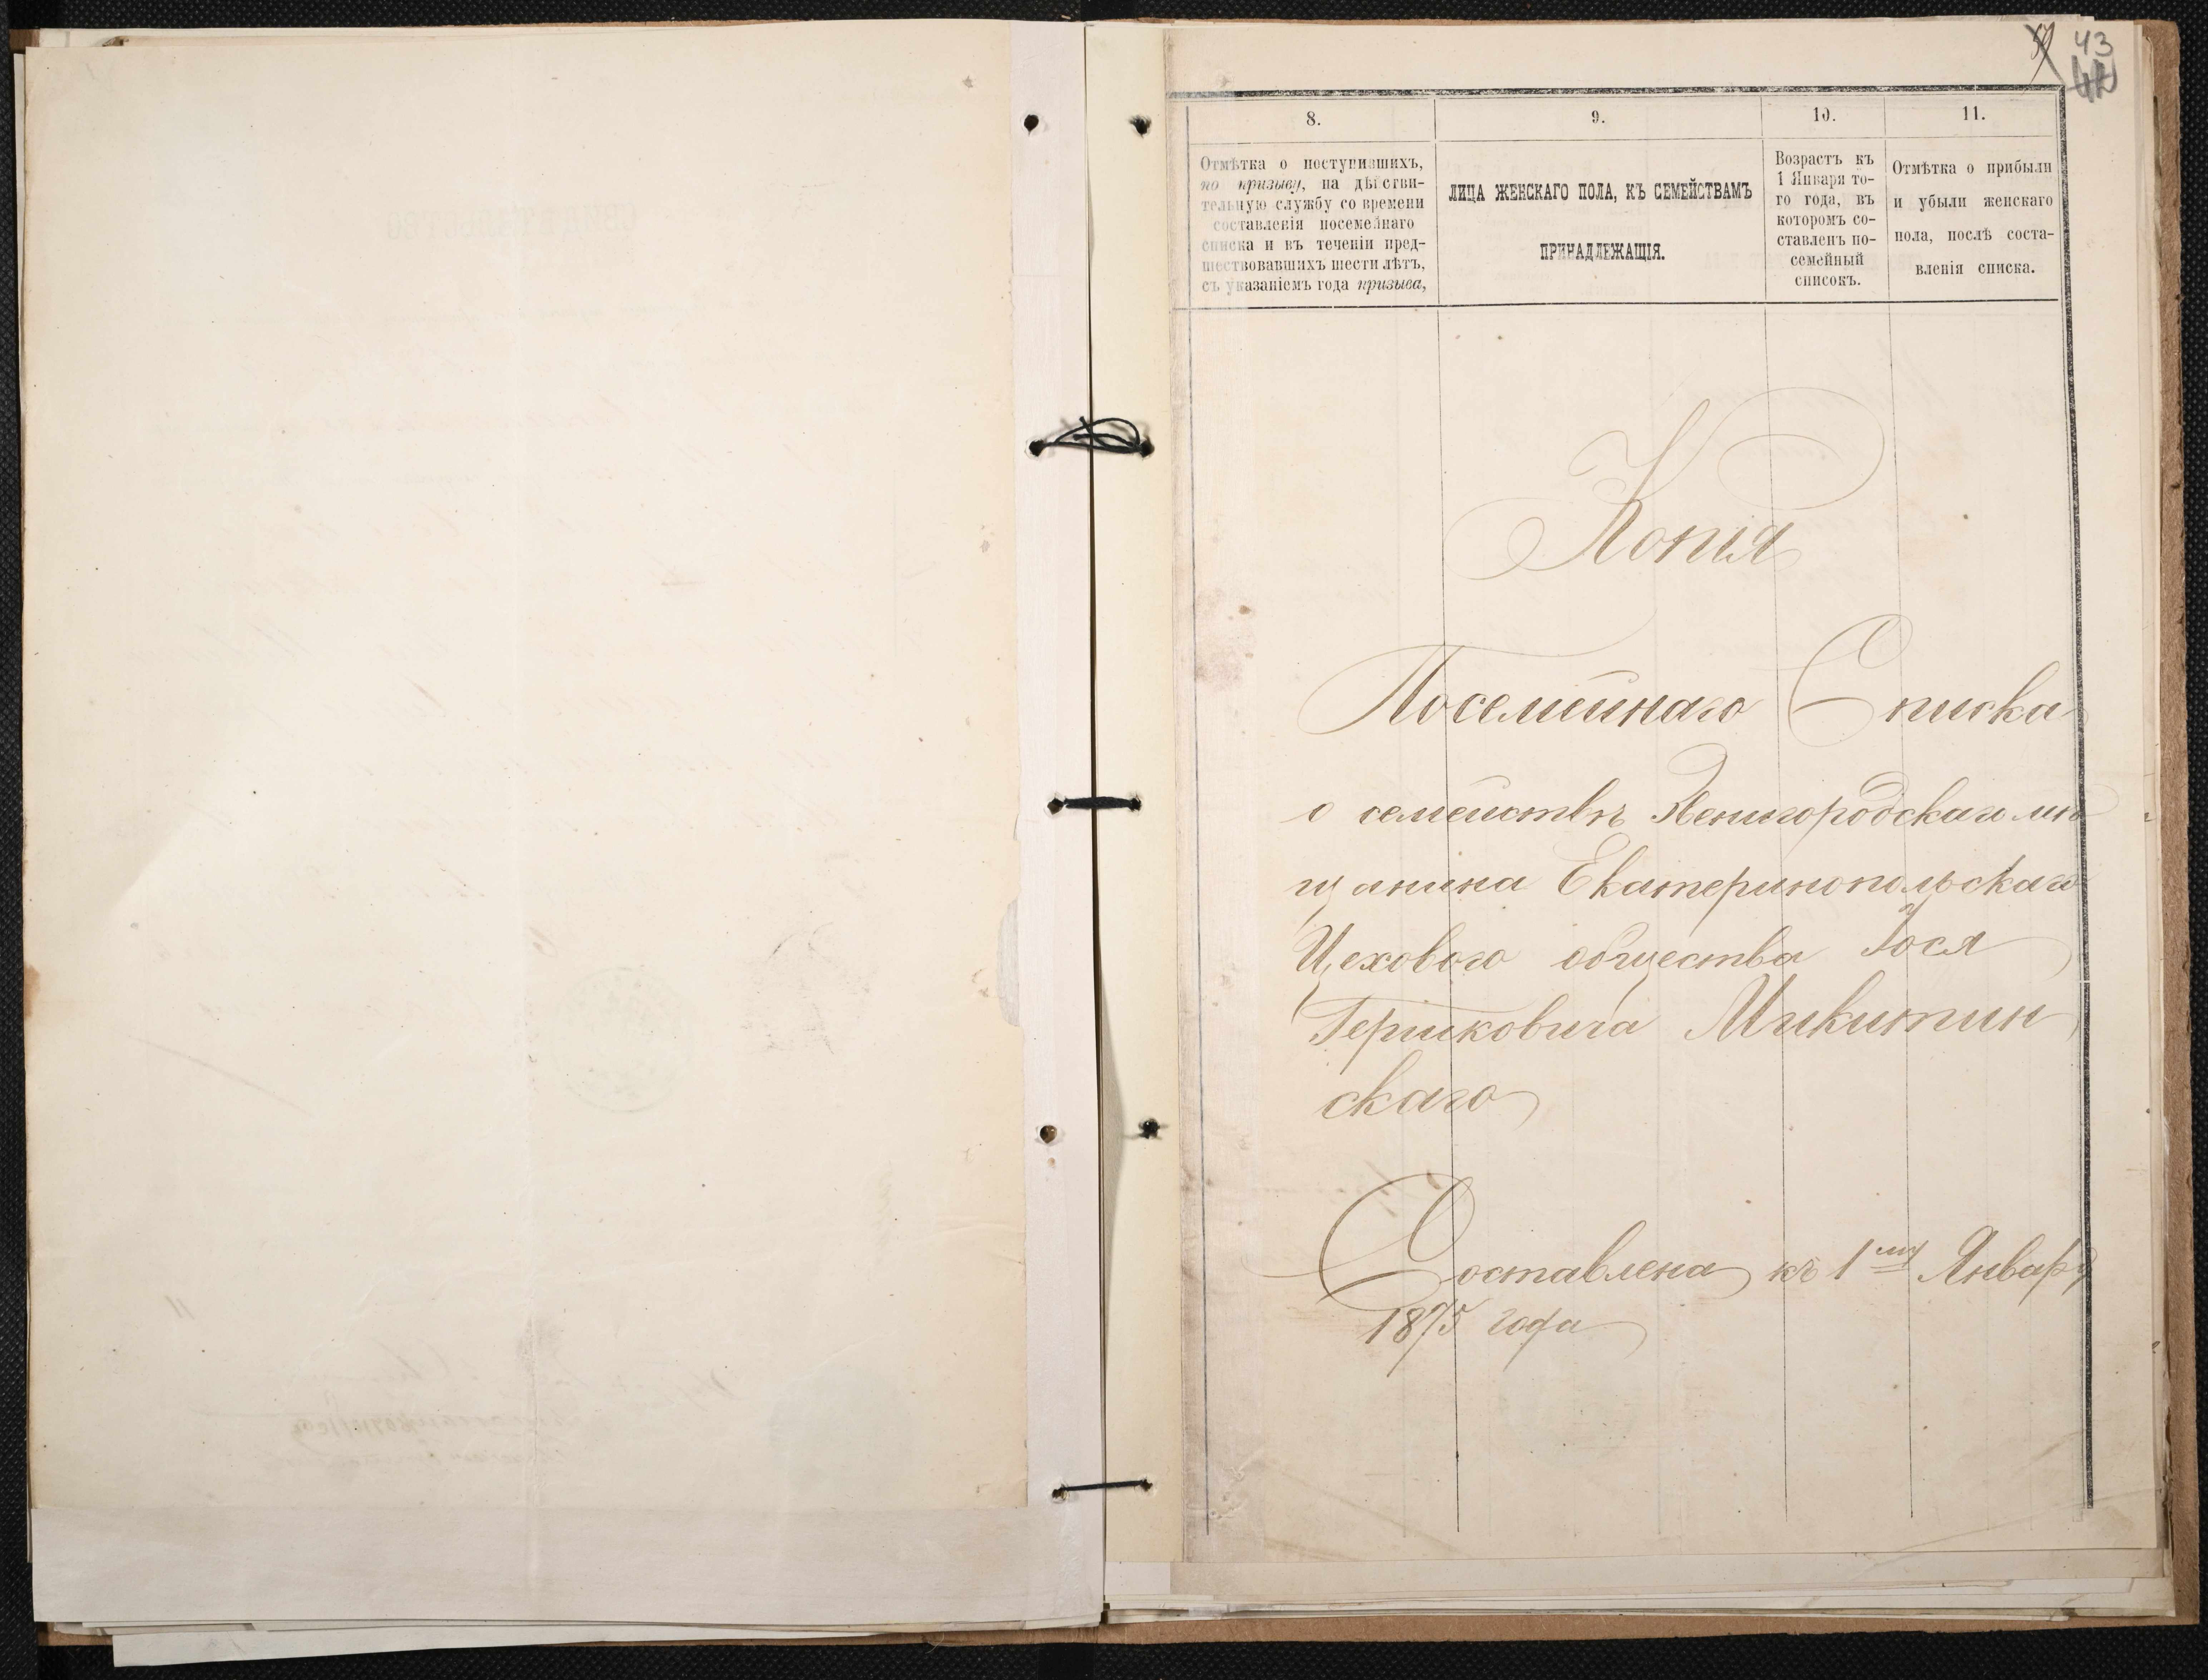 43
8.
9.
10.
11.
Отмѣтка о поступившихъ,
по призыву, на дѣйстви-
тельную службу со времени
составленія посемейнаго
списка и въ теченіи пред-
шествовавшихъ шести лѣтъ,
съ указаніемъ года призыва,
ЛИЦА ЖЕНСКАГО ПОЛА, КЪ СЕМЕЙСТВАМЪ
ПРИНАДЛЕЖАЩІЯ.
Возрастъ къ
1 Января то-
го года, въ
которомъ со-
ставленъ по-
семейный
списокъ.
Отмѣтка о прибыли
и убыли женскаго
пола, послѣ соста-
вленія списка.
Копія
Посемейнаго Списка
о семействѣ Звенигородскаго мѣ
щанина Екатеринопольскаго
Цеховаго общества Іося
Гершковича Микитин
скаго
Составлена къ 1му Январу
1875 года